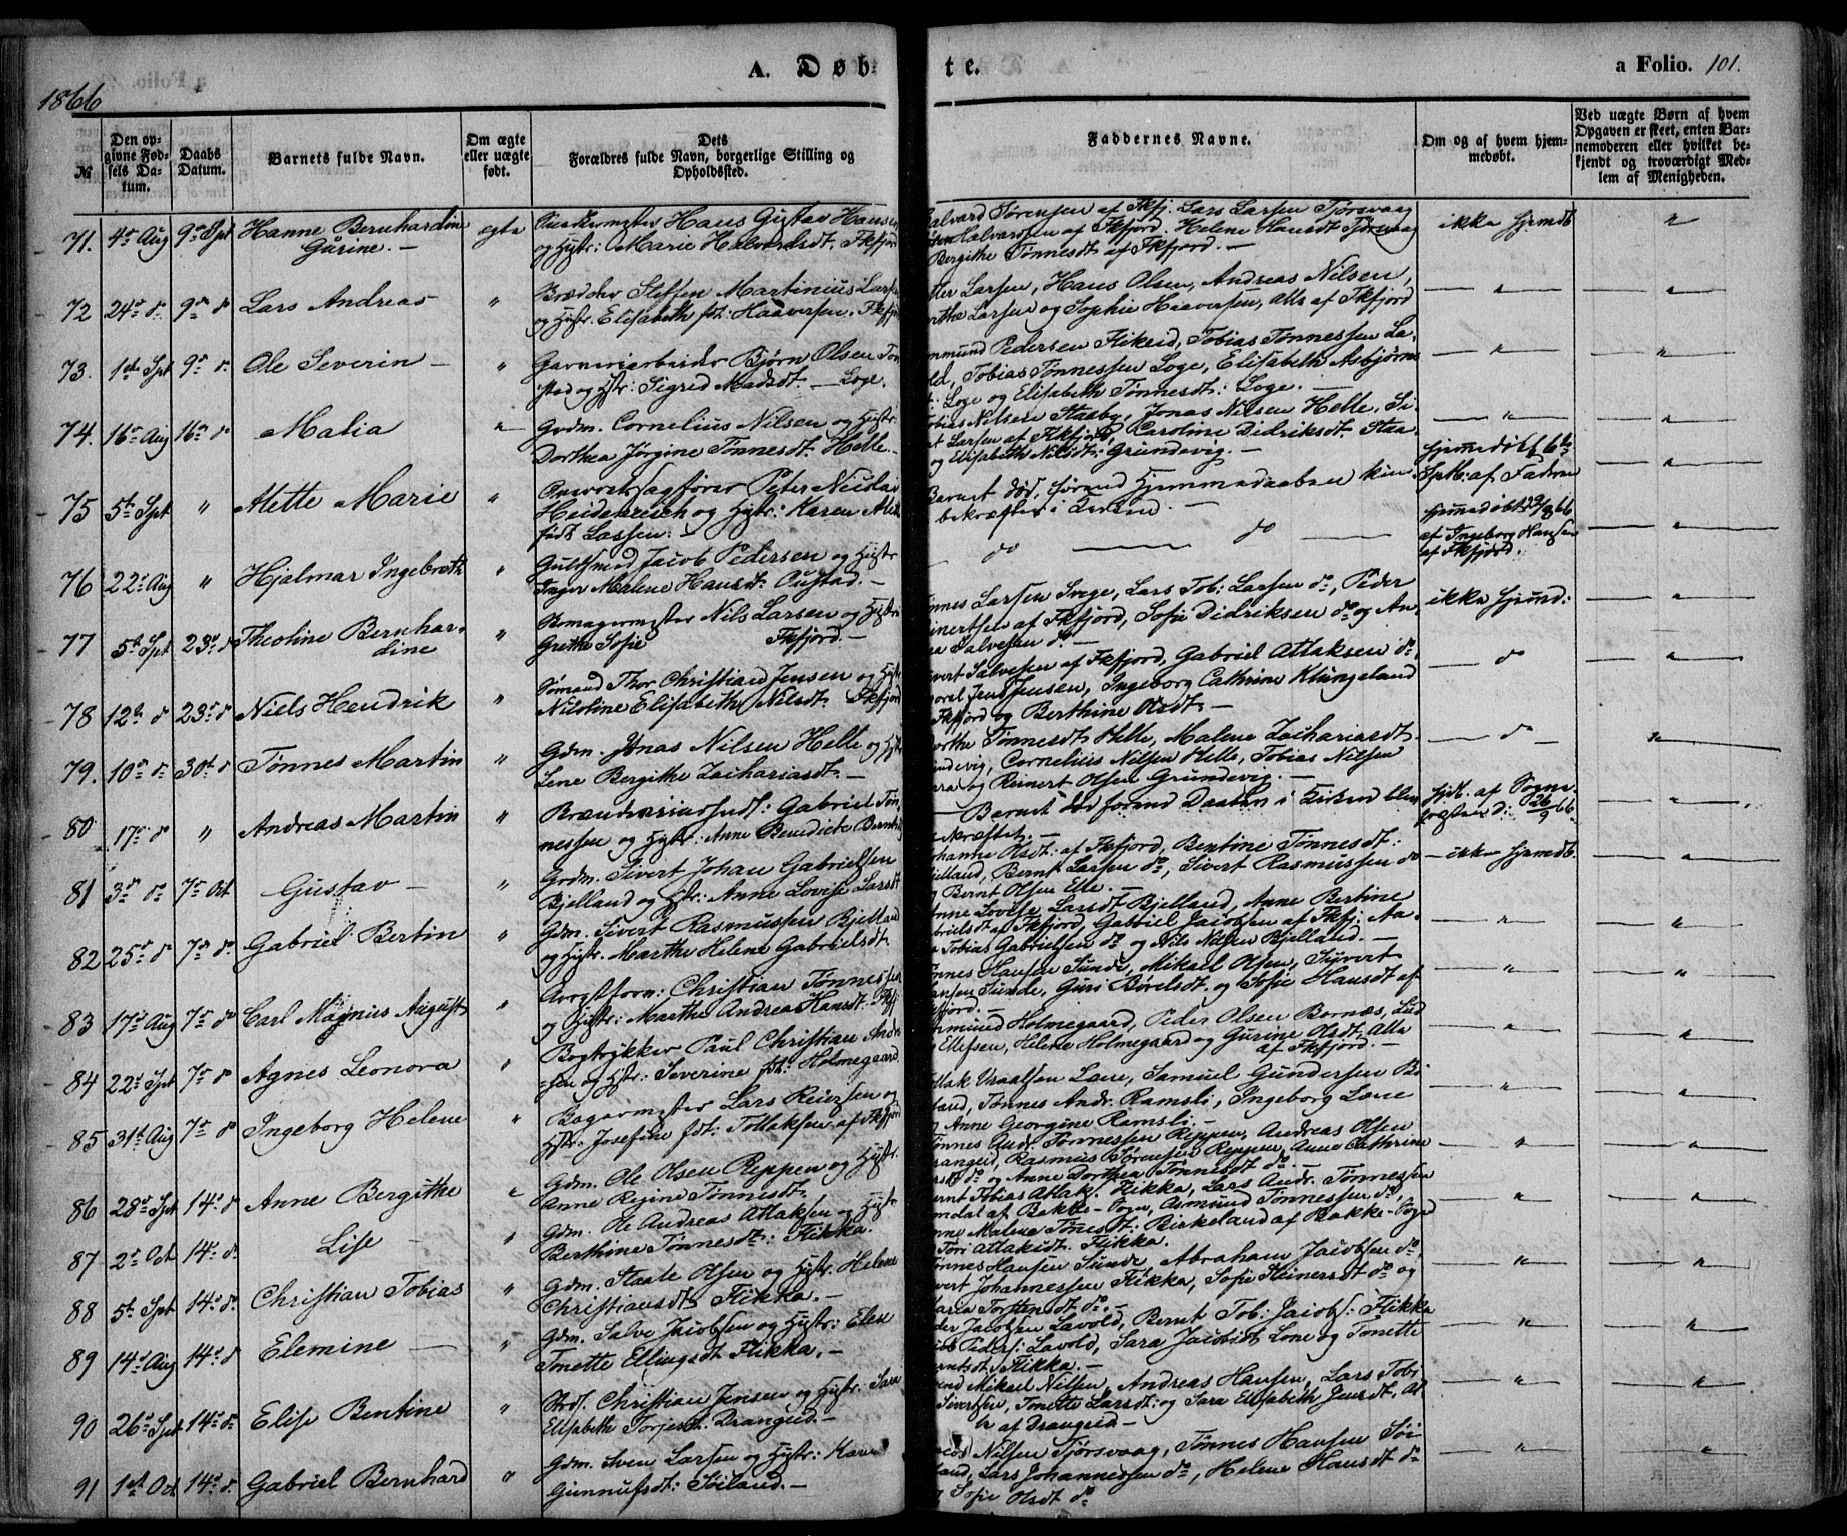 1866
A. Døb
te.
a Folio. 101.
№
Den opgivne Fødsels Datum.
Daabs Datum.
Barnets fulde Navn.
Om ægte eller uægte født.
Dets Forældres fulde Navn, borgerlige Stilling og Opholdssted.
Faddernes Navne.
Om og af hvem hjemmedøbt.
Ved uægte Børn af hvem Opgaven er skeet, enten Barnemoderen eller hvilket bekjendt og troværdigt Medlem af Menigheden.
71. 4de Aug 9de Spt Hanne Bernhardin Gurine. — egte
Hans Gustav Hansen
og Hustr: Marie Halvordsdt. Fkfjord
Halvard Sørensen af Fkfj. Lars Larsen Tjørsvaag
Halvardsen af Fkfjord. Helene Hansdt Tjørsvaag
Bergithe Tønnesdt af Fkfjord. —
ikke hjemdt
72 24de d. 9de d Lars Andreas "
Brødder Steffen Martinius Larsen
og Hustr. Elisabeth fdt: Haaversen. Fkfj
Larsen, Hans Olsen, Andreas Nilsen,
Larsen og Sophie Haaversen, alle af Fkfjord
73. 1ste Spt 9de d. Ole Severin — "
Garveriarbeider Bjørn Olsen
stad og Hstr: Sigrid Madsdt. — Loge.
mmund Pedersen Fikeid, Tobias Tønnessen La
ld, Tobias Tønnessen Loge, Elisabeth Asbjørns
Loge og Elisabeth Tønnesdt: Loge. —
74. 16de Aug 16de d Malia "
Grdm. Cornelius Nilsen og Hstr
Dorthea Jørgine Tønnesdt. Helle. —
Tobias Nilsen Staaby, Jonas Nilsen Helle, Si
t Larsen af Fkfjord, Caroline Didriksdt. Staa
og Elisabeth Nilsdt: Grundevig. —
75 5te Spt " Mette Marie "
Overretssagfører Peter Nicolai
Heidenreich og Hstr: Karen
født Lassen: —
Barnet død, førend Hjemmedaaben kun
bekræftes i Kirken. —
hjemmedøbt 6te
Sptb: af Faderen
76 22de Aug " Hjalmar Ingebreth "
Guldsmed Jacob Pedersen og Hustr
Inger Malene Hansdt: Oustad. —
do — do —
hjemmedøbt 29/8 66
af Ingeborg Hansen
af Fkfjord.
77 5te Spt 23de d Theoline Bernhardine "
Nils Larsen og Hstr
Grethe Sofie Fkfjord. —
Tønnes Larsen Svege, Lars Tob: Larsen do, Peder
inertsen af Fkfjord, Sofie Didriksen do og An
a Salvesen do —
ikke hjemd:
78 12te d 23de d Niels Hendrik "
Sømand Thor Christian Jensen og Hstr
Nicoline Elisabeth Nilsdt Fkfjord
vert Salvesen af Fkfjord, Gabriel Atlaksen do,
Jensen, Ingeborg Cathrine Klungeland
Fkfjord og Berthine Olsdt —
do
79. 10de d. 30te d Tønnes Martin "
Gdm. Jonas Nilsen Helle og Hstr
Lene Bergithe Zachariasdt. —
Dorthe Tønnesdt Helle, Malene Zachariasdt.
Grundevig, Cornelius Nilsen Helle, Tobias Nilsen
og Reinert Olsen Grundevig. —
do
80 17de d " Andreas Martin "
Gabriel Tønnessen og Hustr: Anne Benedicte Berntsdt
— Barnet død førend Daaben i Kirken blev
bekræftet. —
hjdt. af Sogne
26/9 66.
81 3de d. 7de Oct Gustav — "
Grdm. Sivert Johan Gabrielsen
Bjelland og Hstr: Anne Lovise Larsdt
Johanne Olsdt: af Fkfjord, Bentine Tønnesdt:
Bjelland, Bernt Larsen do, Sivert Rasmussen do
og Bernt Olsen Elle. —
ikke hjemdt.
82 25de d 7de d. Gabriel Bertin "
Gdm. Sivert Rasmussen Bjelland
og Hustr. Marthe Helene Gabrielsdt.
Anne Lovise Larsdt Bjelland, Anne Bertine
Gabrielsdt af Fkfjord, Gabriel Jacobsen af Fkfj: Aa
Tobias Gabrielsen do og Nils Nilsen Bjelland. —
83 17de Aug 7de d Carl Magnus August "
Christian Tønnessen
og Hustr: Marthe Andrea Hansdt: Fkfj
Tønnes Hansen Sunde, Mikael Olsen, Syvert
Hansen Sunde, Guri Børelsdt. og Sofie Hansdt af
Fkfjord. —
84 22de Spt 7de d Agnes Leonora "
Bogtrykker Paul Christian Andersen og Hstr: Severine fdt: Holmegaard
Asmund Holmegaard, Peder Olsen Bornæs, Lud
Ellefsen, Helene Holmegaard og Gurine Olsdt. Alle
af Fkfjord. —
85 31te Aug 7de d Ingeborg Helene "
Bagermester Lars Reiersen og
Hstr: Josefine fdt: Tollaksen af Fkfjord
Tollak Vraalsen Lene, Samuel Gundersen Bi
land, Tønnes Andr. Ramsli, Ingeborg Lene
og Anne Georgine Ramsli. —
86 28de Spt 14de d Anne Bergithe "
Gdm. Ole Olsen Reppen og Hstr.
Anne Regine Tønnesdt.
Tønnes Gudt Tønnessen Reppen, Andreas Olsen
Drangeid, Rasmus Sørensen Reppen, Anne Cathrine
do og Anne Dorthea Tønnesdt do. —
87 2de Oct 14de d. Lise — "
Gdm. Ole Andreas Atlaksen og Hstr
Berthine Tønnesdt: Flikka.
Bernt Tobias Atlak. Flikka, Lars Andr. Tønnessen
mdal af Bakke-Sogn, Asmund Tønnessen do,
Anne Malene Tønesdt: Birkeland af Bakke-Sogn
Tori Atlaksdt. Flikka.
88 5te Spt 14de d. Christian Tobias "
Gdm. Staale Olsen og Hustr. Helene
Christiansdt. Flikka. —
Tønnes Hansen Sunde, Abraham Jacobsen do,
vert Johannessen Flikka, Sofie Steinersdt do og
Maria Torstensdt do. —
89 14de Aug 14de d Elemine — "
Gdm. Salve Jacobsen og Hustr: Elese
Tonette Ellingsdt Flikka. —
Peder Jacobsen Lavold, Bernt Tob: Jacobs: Flikka
Peders: Lavold, Sara Jacobsdt Lone og Tonette
Berntsdt. Flikka. —
90 26de Spt 14de d. Elise Bentine "
Christian Jensen og Hustr. Sara
Elisabeth Torjesdt. Drangeid. —
end Mikael Nilsen, Andreas Hansen, Lars Tobi
Sivertsen, Tonette Larsdt: og Sara Elisabeth Jensdt. Al
le af Drangeid —
91 1ste Oct 14de d. Gabriel Bernhard "
Gdm. Sven Larsen og Hustr: Karen
Gunnufsdt: Söiland. —
Nilsen Tjørsvaag, Tønnes Hansen Söi
land, Lars Johannessen do, Helene Hansdt do
og Sofie Olsdt do